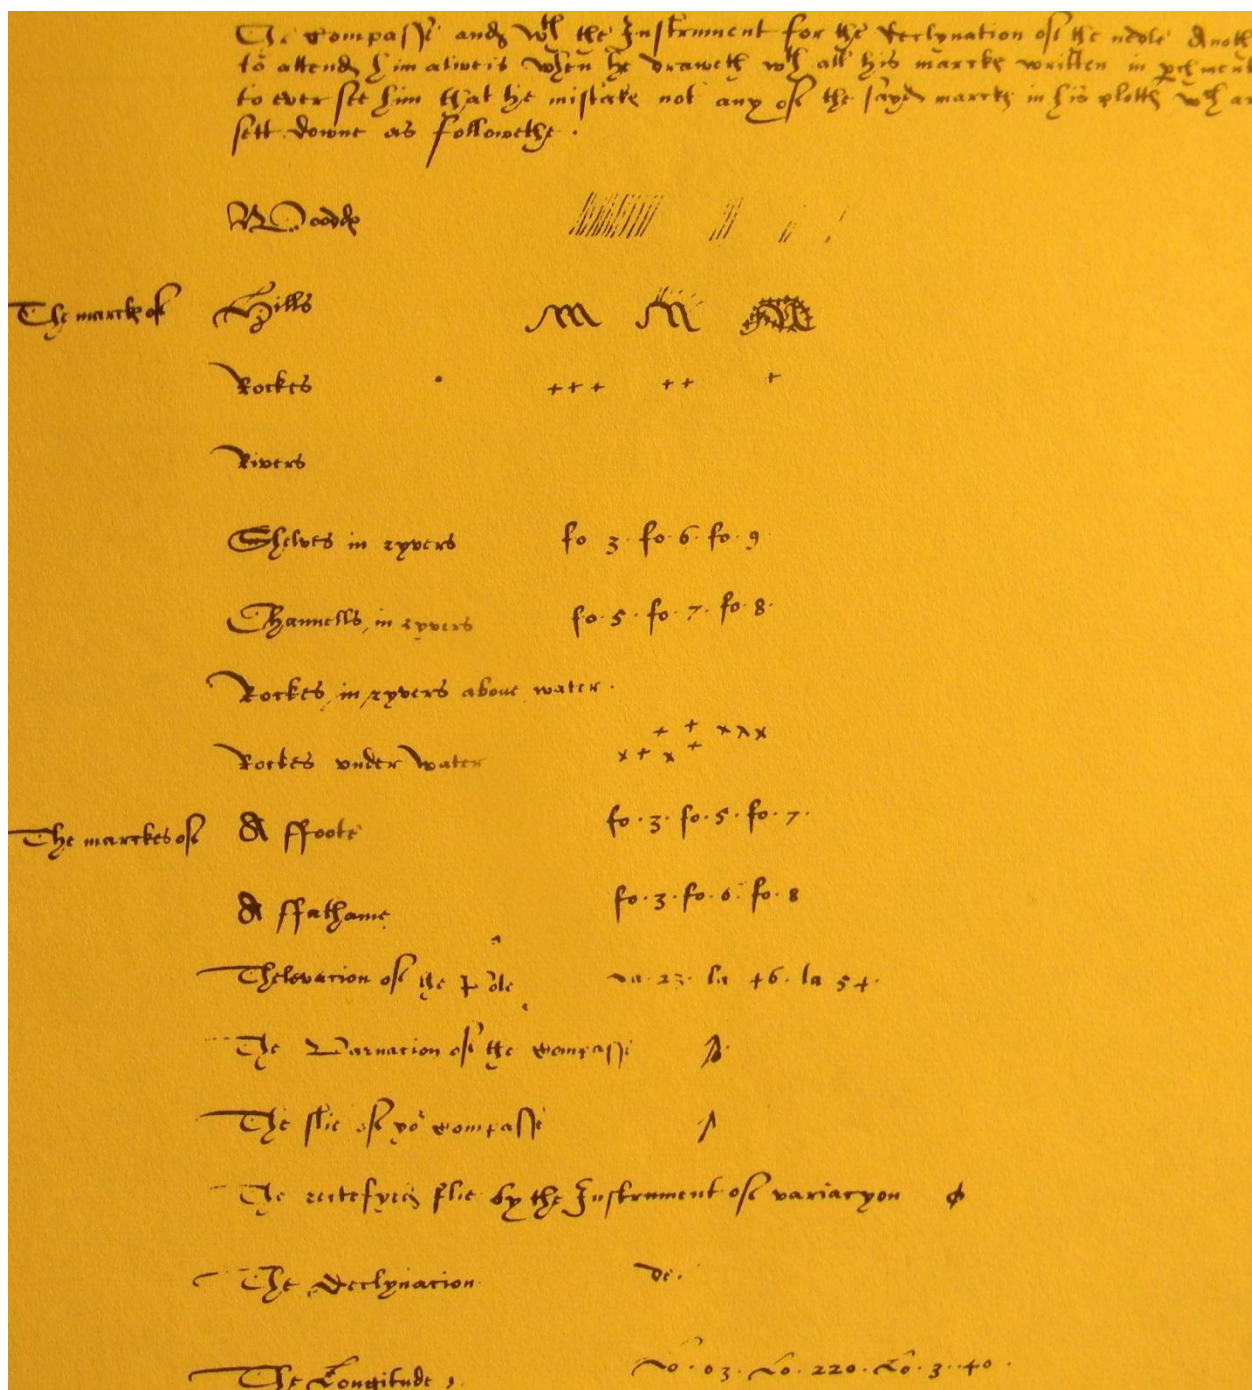 The Compasse and wth the Instrument for the declynation of the nedle Anoth
to attend him alweis when he draweth wth all his marcks written in pchment
to over see him that he mistake not any of the sayd marcks in his plotts wth ar
sett downe as followethe .
Woodds
The marcks of Hills
Rockes + + + + + +
Rivers
Shelves in ryvers fo 3 . fo . 6 . fo . 9
Channells in ryvers fo . 5 . fo . 7 . fo . 8 .
Rockes in ryvers above water .
Rockes under water
The marckes of A ffoote fo . 3 . fo . 5 . fo . 7 .
A ffathame fo . 3 . fo . 6 . fo . 8
Thelevacion of the Pole la . 23 . la 46 . la 54 .
The Varuacion of the Compasse
The flie of yor Compasse
The rectefyed flie by the Instrument of variacyon
The declynacion de .
The Longitude Lo . 03 . Lo . 220 . Lo . 3 . 40 .